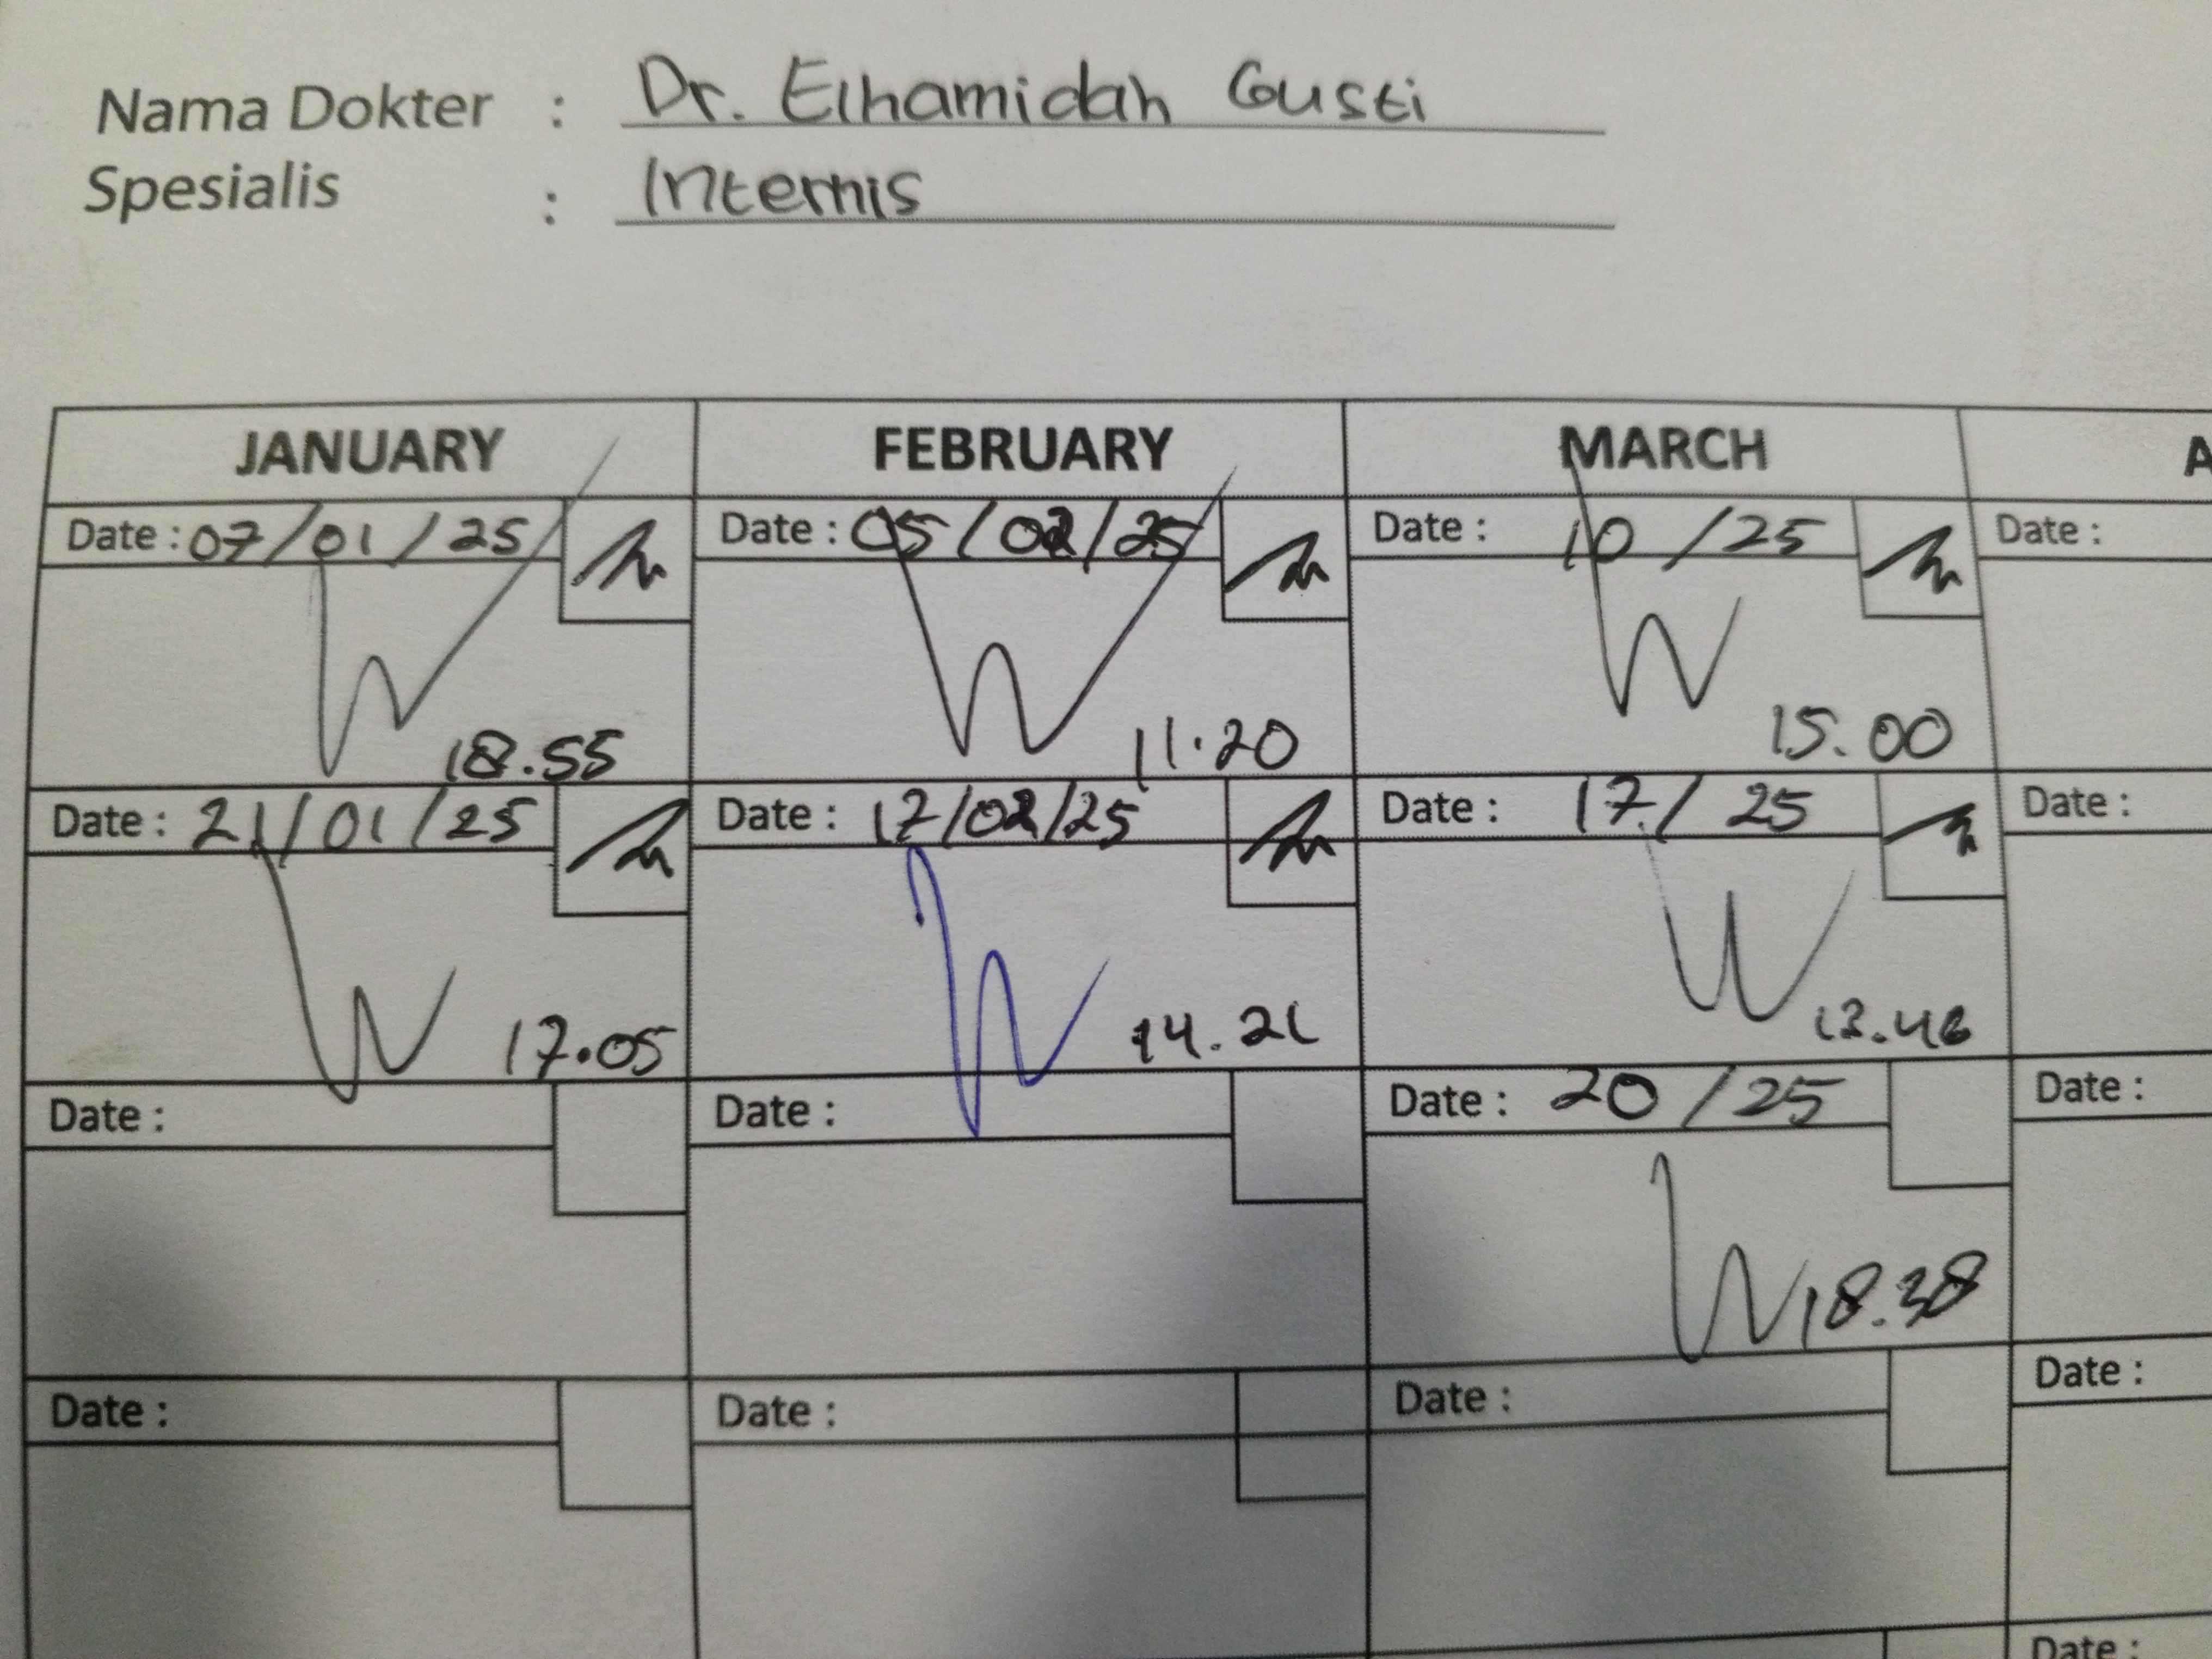 Nama Dokter : Dr. Elhamidah Gusti
Spesialis : Internis
JANUARY FEBRUARY MARCH A
Date : 07/01/25 Date : 05/02/25 Date : 10 /25 Date :
18.55 11.20 15.00
Date : 21/01/25 Date : 17/02/25 Date : 17/ 25 Date :
17.05 14.21
Date : Date : Date : 20 /25 Date :
18.38
Date : Date : Date : Date :
Date :